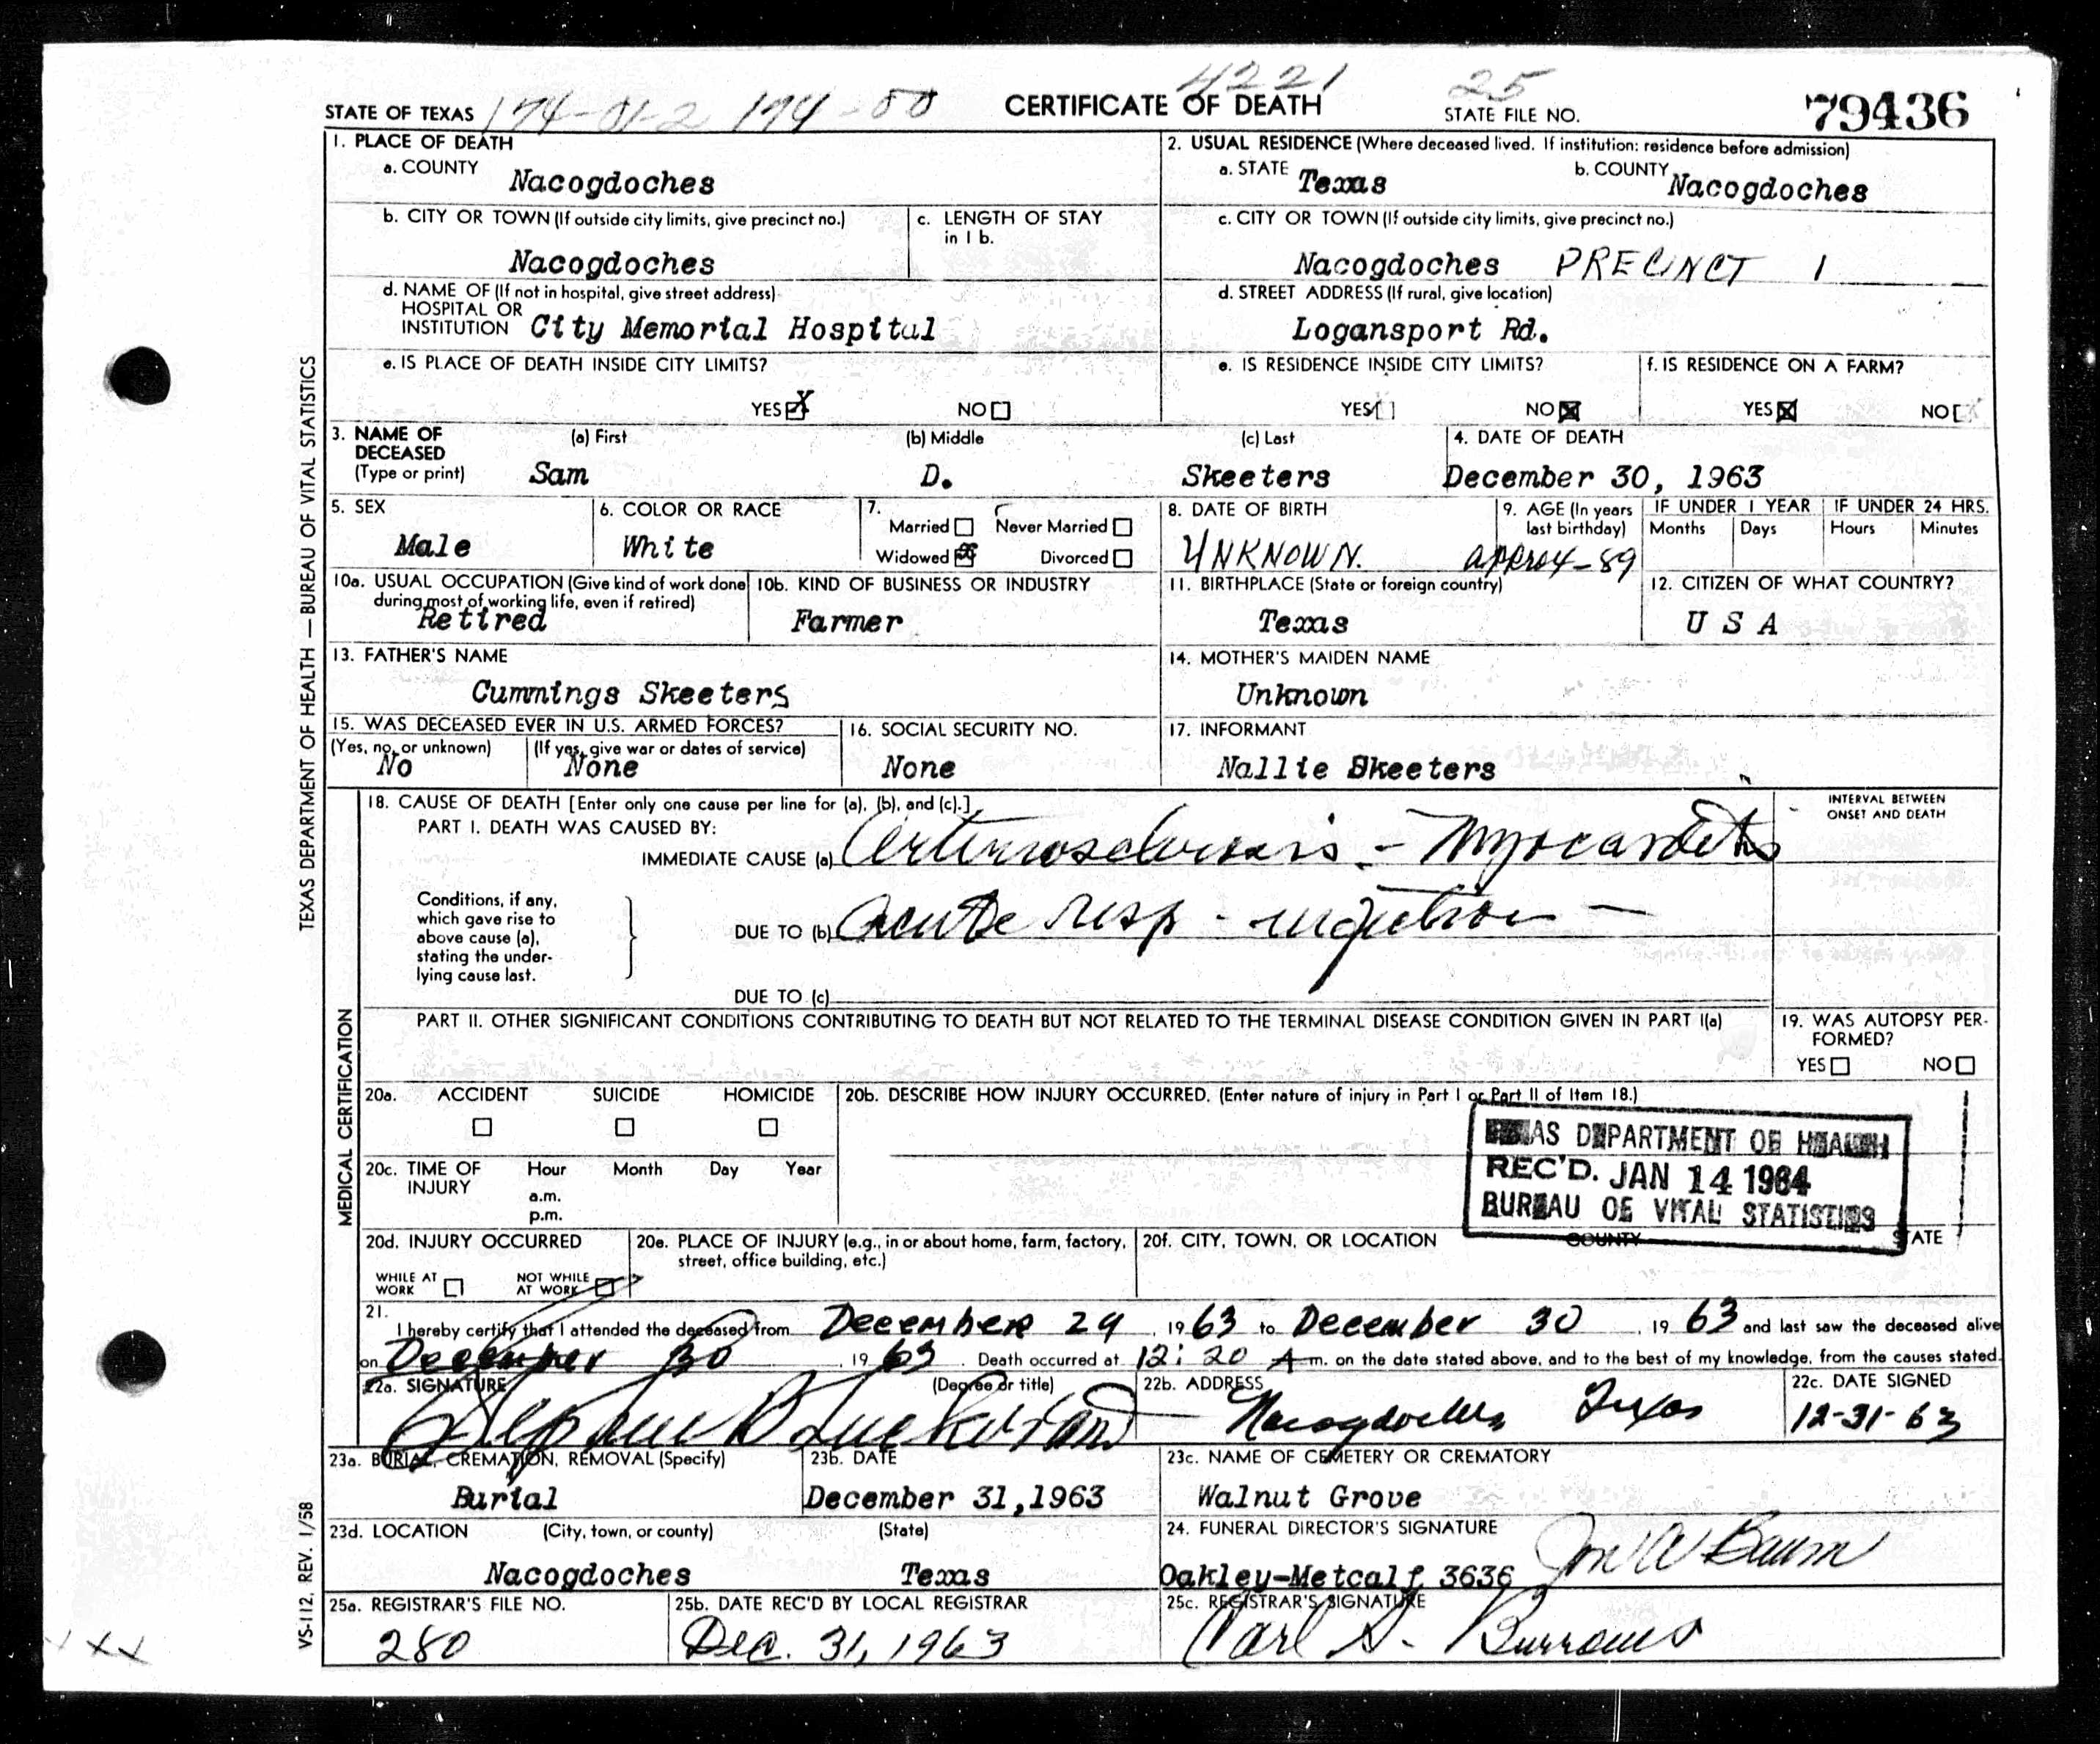 4221 25
STATE OF TEXAS 174-01-2 174-00 CERTIFICATE OF DEATH STATE FILE NO. 79436
1. PLACE OF DEATH
a. COUNTY Nacogdoches
2. USUAL RESIDENCE (Where deceased lived. If institution: residence before admission)
a. STATE Texas b. COUNTY Nacogdoches
b. CITY OR TOWN (If outside city limits, give precinct no.)
Nacogdoches
c. LENGTH OF STAY
in 1 b.
c. CITY OR TOWN (If outside city limits, give precinct no.)
Nacogdoches PRECINCT 1
d. NAME OF (If not in hospital, give street address)
HOSPITAL OR
INSTITUTION City Memorial Hospital
d. STREET ADDRESS (If rural, give location)
Logansport Rd.
e. IS PLACE OF DEATH INSIDE CITY LIMITS?
YES X NO
e. IS RESIDENCE INSIDE CITY LIMITS?
YES NO X
f. IS RESIDENCE ON A FARM?
YES X NO
3. NAME OF
DECEASED
(Type or print)
(a) First (b) Middle (c) Last
Sam D. Skeeters
4. DATE OF DEATH
December 30, 1963
5. SEX
Male
6. COLOR OR RACE
White
7.
Married Never Married
Widowed X Divorced
8. DATE OF BIRTH
UNKNOWN.
9. AGE (In years
last birthday)
approx-89
IF UNDER 1 YEAR IF UNDER 24 HRS.
Months Days Hours Minutes
10a. USUAL OCCUPATION (Give kind of work done
during most of working life, even if retired)
Retired
10b. KIND OF BUSINESS OR INDUSTRY
Farmer
11. BIRTHPLACE (State or foreign country)
Texas
12. CITIZEN OF WHAT COUNTRY?
U S A
13. FATHER'S NAME
Cummings Skeeters
14. MOTHER'S MAIDEN NAME
Unknown
15. WAS DECEASED EVER IN U.S. ARMED FORCES?
(Yes, no, or unknown) (If yes, give war or dates of service)
No None
16. SOCIAL SECURITY NO.
None
17. INFORMANT
Nallie Skeeters
18. CAUSE OF DEATH [Enter only one cause per line for (a), (b), and (c).]
PART I. DEATH WAS CAUSED BY:
IMMEDIATE CAUSE (a) Arteriosclerosis - Myocarditis
INTERVAL BETWEEN
ONSET AND DEATH
Conditions, if any,
which gave rise to
above cause (a),
stating the under-
lying cause last.
DUE TO (b) acute resp -
DUE TO (c)
PART II. OTHER SIGNIFICANT CONDITIONS CONTRIBUTING TO DEATH BUT NOT RELATED TO THE TERMINAL DISEASE CONDITION GIVEN IN PART I(a)
19. WAS AUTOPSY PER-
FORMED?
YES NO
20a. ACCIDENT SUICIDE HOMICIDE
20b. DESCRIBE HOW INJURY OCCURRED. (Enter nature of injury in Part I or Part II of Item 18.)
TEXAS DEPARTMENT OF HEALTH
REC'D. JAN 14 1964
BUREAU OF VITAL STATISTICS
20c. TIME OF
INJURY
Hour Month Day Year
a.m.
p.m.
20d. INJURY OCCURRED
WHILE AT
WORK
NOT WHILE
AT WORK
20e. PLACE OF INJURY (e.g., in or about home, farm, factory,
street, office building, etc.)
20f. CITY, TOWN, OR LOCATION COUNTY STATE
21.
I hereby certify that I attended the deceased from December 29, 1963 to December 30, 1963 and last saw the deceased alive
on December 30, 1963. Death occurred at 12:20 A m. on the date stated above, and to the best of my knowledge, from the causes stated.
22a. SIGNATURE (Degree or title)
Stephen B Tucker
22b. ADDRESS
Nacogdoches Texas
22c. DATE SIGNED
12-31-63
23a. BURIAL, CREMATION, REMOVAL (Specify)
Burial
23b. DATE
December 31,1963
23c. NAME OF CEMETERY OR CREMATORY
Walnut Grove
23d. LOCATION (City, town, or county) (State)
Nacogdoches Texas
24. FUNERAL DIRECTOR'S SIGNATURE
Oakley-Metcalf 3636 Baum
25a. REGISTRAR'S FILE NO.
280
25b. DATE REC'D BY LOCAL REGISTRAR
Dec. 31, 1963
25c. REGISTRAR'S SIGNATURE
Carl D. Burrows
TEXAS DEPARTMENT OF HEALTH — BUREAU OF VITAL STATISTICS
MEDICAL CERTIFICATION
VS-112, REV. 1/58